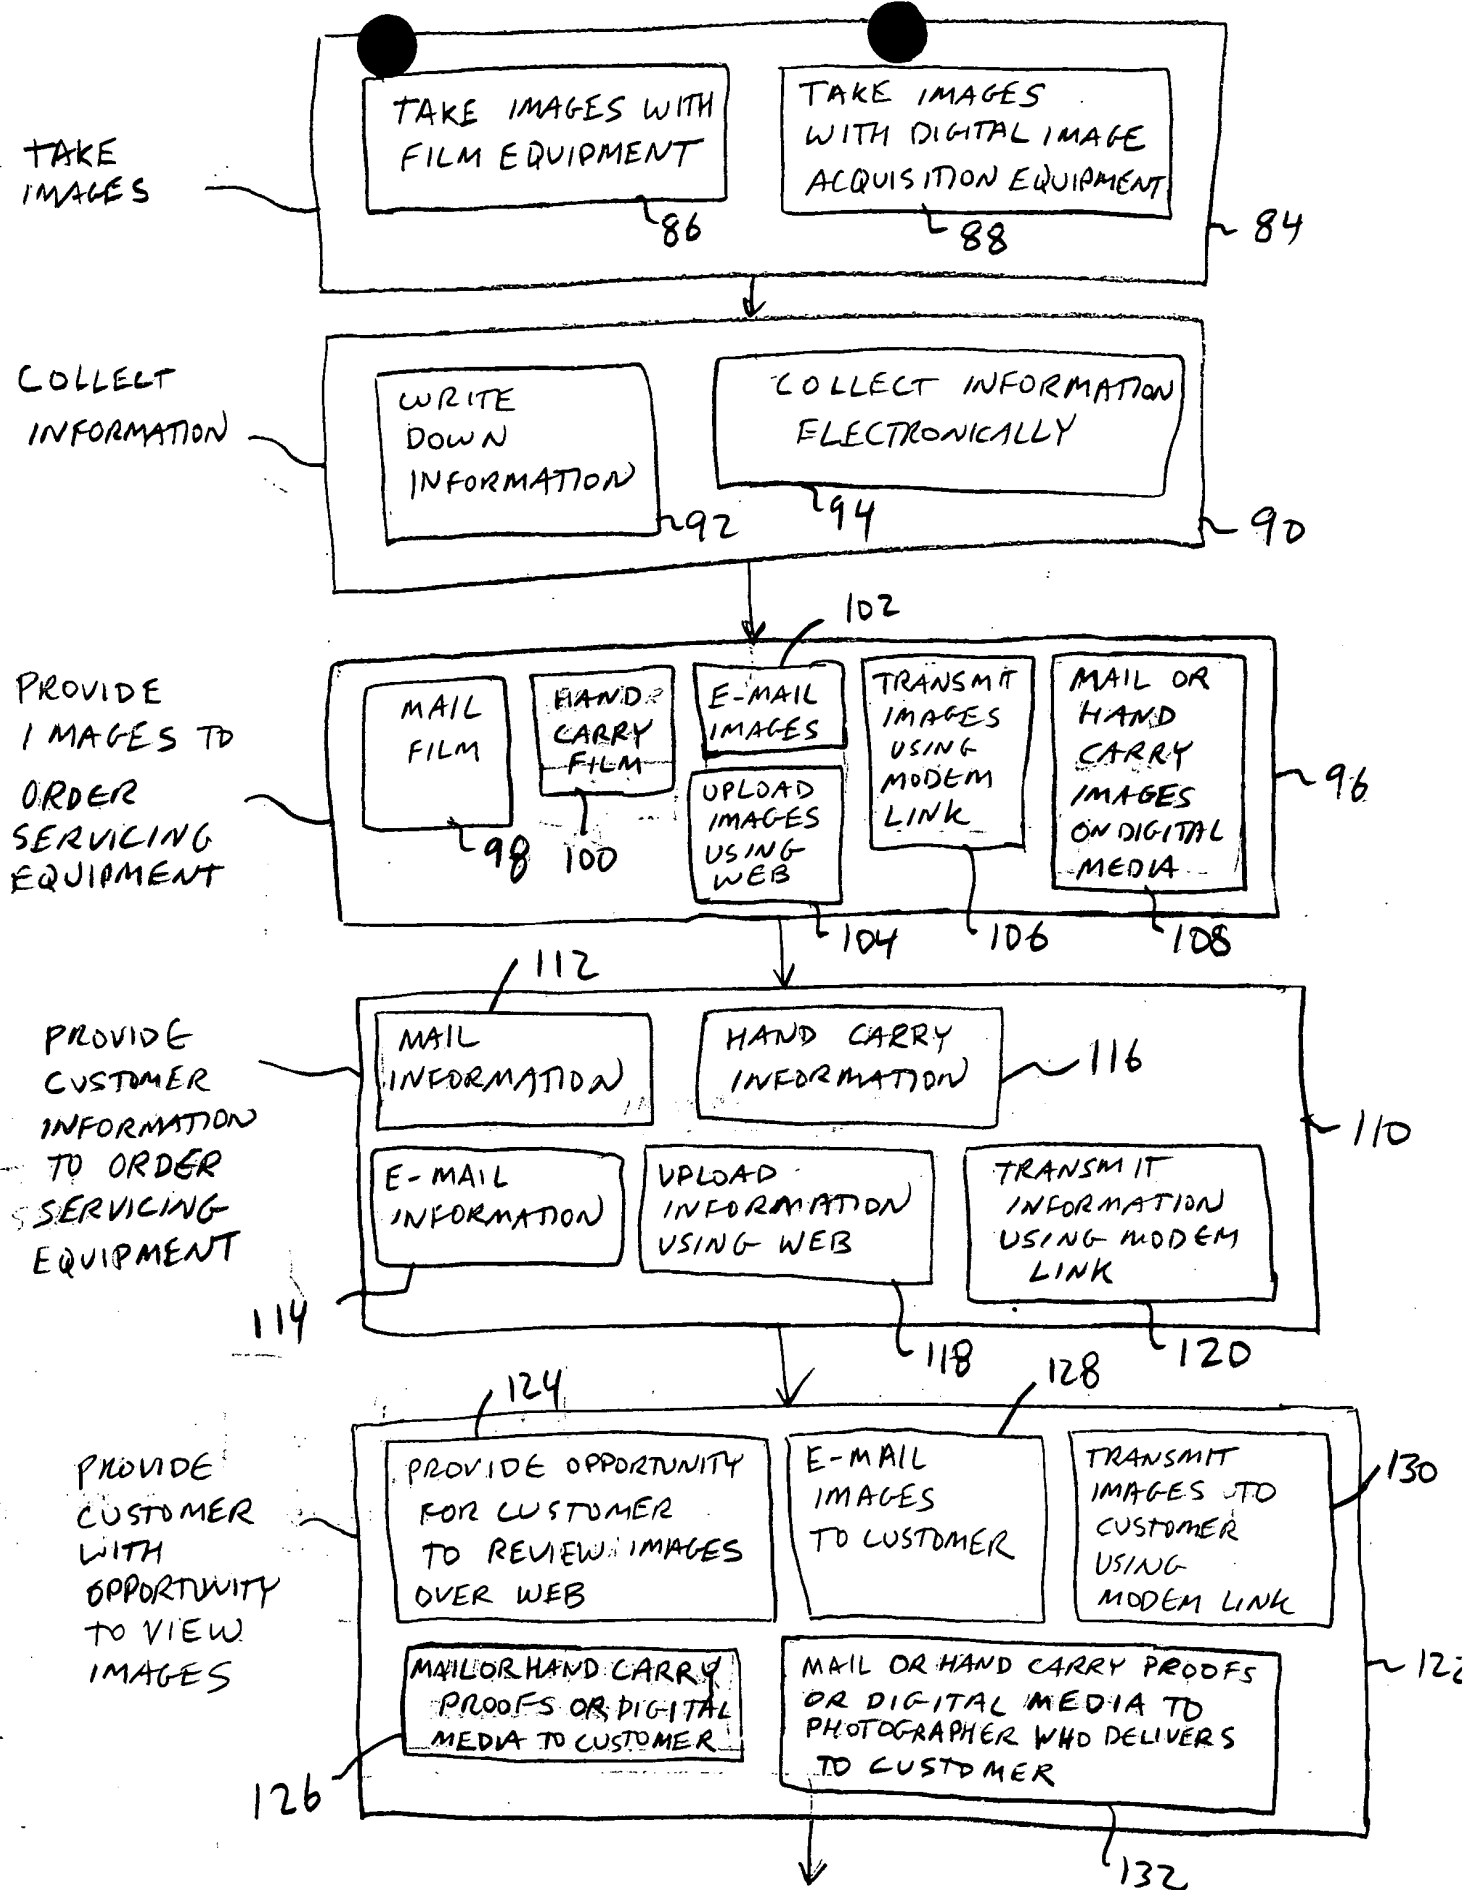 TAKE
IMAGES
TAKE IMAGES WITH
FILM EQUIPMENT
86
TAKE IMAGES
WITH DIGITAL IMAGE
ACQUISITION EQUIPMENT
88
84
COLLECT
INFORMATION
WRITE
DOWN
INFORMATION
92
COLLECT INFORMATION
ELECTRONICALLY
94
90
PROVIDE
IMAGES TO
ORDER
SERVICING
EQUIPMENT
MAIL
FILM
98
HAND
CARRY
FILM
100
102
E-MAIL
IMAGES
UPLOAD
IMAGES
USING
WEB
104
TRANSMIT
IMAGES
USING
MODEM
LINK
106
MAIL OR
HAND
CARRY
IMAGES
ON DIGITAL
MEDIA
108
96
PROVIDE
CUSTOMER
INFORMATION
TO ORDER
SERVICING
EQUIPMENT
112
MAIL
INFORMATION
HAND CARRY
INFORMATION
116
110
E-MAIL
INFORMATION
114
UPLOAD
INFORMATION
USING WEB
118
TRANSMIT
INFORMATION
USING MODEM
LINK
120
PROVIDE
CUSTOMER
WITH
OPPORTUNITY
TO VIEW
IMAGES
124
PROVIDE OPPORTUNITY
FOR CUSTOMER
TO REVIEW IMAGES
OVER WEB
128
E-MAIL
IMAGES
TO CUSTOMER
TRANSMIT
IMAGES TO
CUSTOMER
USING
MODEM LINK
130
MAIL OR HAND CARRY
PROOFS OR DIGITAL
MEDIA TO CUSTOMER
126
MAIL OR HAND CARRY PROOFS
OR DIGITAL MEDIA TO
PHOTOGRAPHER WHO DELIVERS
TO CUSTOMER
132
122